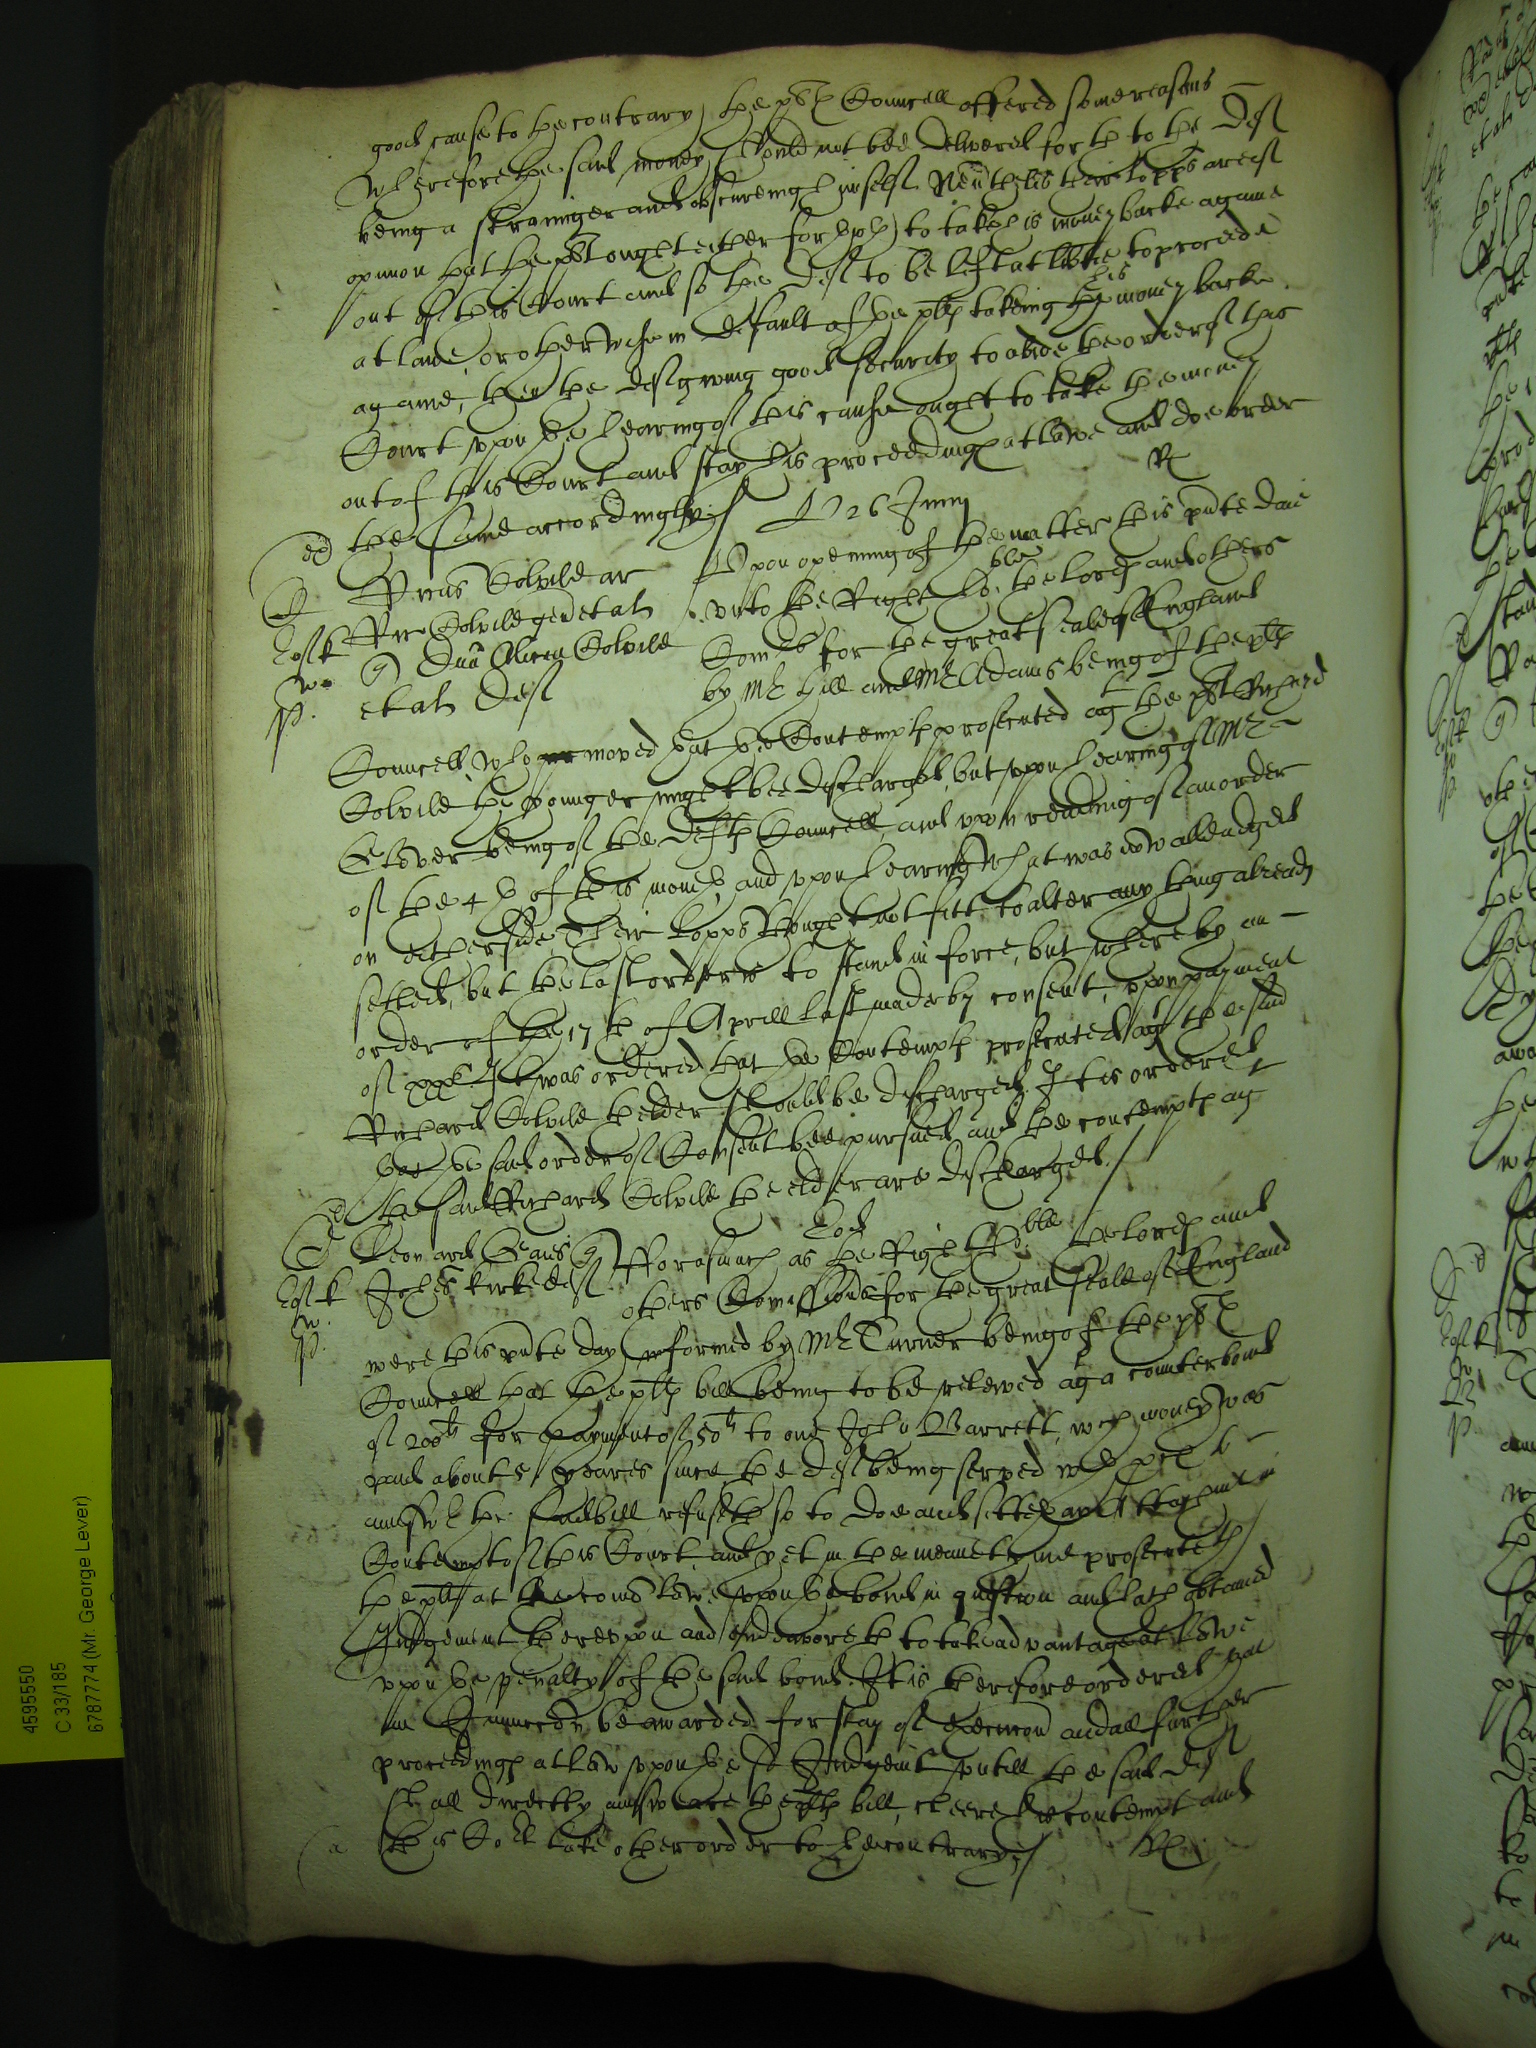 good cause to the contrary, the pltes Councell offered some reasons
Wherefore the said money should not bee delivered forth to the Deft
being a straunger and obscureing himself. Nevtheles their Lopps are of
opinion that the plt ought either forthwth to take his money backe againe
out of this Court and so the Deft to be left at libtie to proceede
at lawe, or otherwise in default of the pltes takeing his money backe
againe, then the Deft giveing good security to abide the order of this
Court upon the hearing of this cause ought to take the money
out of this Court and stay his proceedinges at lawe and doe order
the same accordingly
26 Junij
Ricus Colvile ar
Ric Colvile gen et al
Dna Alicia Colvile
et al Deft
Upon opening of the matter this pnte daie
unto the Right ho:ble the lordes and others
Comrs for the great seale of England
by Mr Hill and Mr Adams being of the pltes
Councell, who moved that the Contemptes prosecuted agt the plt Richard
Colvile the younger might bee discharged, but upon hearing of Mr
Glover being of the Deftes Councell, and upon reading of an order
of the 4th of this month, and upon hearing what was now alleadged
on either side, Their Lopps thought not fitt to alter any thing already
setled, but the last order is to stand in force, but whereby an
order of the 17th of Aprill last made by consent, upon payment
of xxxs It was ordered that the Contemptes prosecuted agt the said
Richard Colvile thelder should be discharged. It is ordered
that the said order of Consent bee pursued and the contemptes agt
the said Richard Colvile the elder are discharged.
Leonard Geaus
Johes Kirke deft
Forasmuch as the Right ho:ble the lordes and
others Comissions for the great Seale of England
were this pnte day informed by Mr Turner being of the pltes
Councell that the pltes bill being to be releived agt a counterbond
of 200li for payment of 50li to one John Barrett, wch money was
paid about 5 yeares since the Deft being served wth proces to
answere the said bill refuseth so to doe and sitteth an Attachmt in
Contempt of this Court and yet in the meane tyme prosecuteth
the plt at the comon lawe upon the bond in question and hath obtained
Judgement thereupon and endeavoreth to take advantage at lawe
upon the penalty of the said bond. It is therefore ordered that
an Iniunccon be awarded for stay of Execucon and all further
proceedinges at law upon the sd Judgemt untill the said Deft
shall directly answeare the pltes bill, cleere his contempt and
this Cort take other order to the contrary
4595550
C 33/185
6787774 (Mr. George Lever)